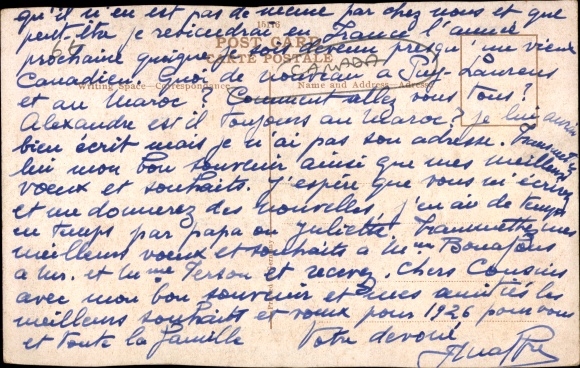 qu'il n'en est pas de même par chez nous et que
peut-être je reviendrai en France l'année
prochaine quoique je sois devenu presqu'un vieux
Canadien. Quoi de nouveau à Puy-Laurens
et au Maroc ? Comment allez vous tous ?
Alexandre est il toujours au Maroc ? je lui aurais
bien écrit mais je n'ai pas son adresse. Transmettez
lui mon bon souvenir ainsi que mes meilleurs
vœux et souhaits. J'espère que vous m'écrirez
et me donnerez des nouvelles j'en ai de temps
en temps par papa ou Juliette. Transmettez mes
meilleurs voeux et souhaits à Mme Bonafous
à Mr. et Mme Terson et recevez, Chers Cousins
avec mon bon souvenir et mes amitiés les
meilleurs souhaits et voeux pour 1926 pour vous
et toute la famille
Votre dévoué
POST CARD
CANADA
CARTE POSTALE
Writing Space—Correspondance
Name and Address—Adresse